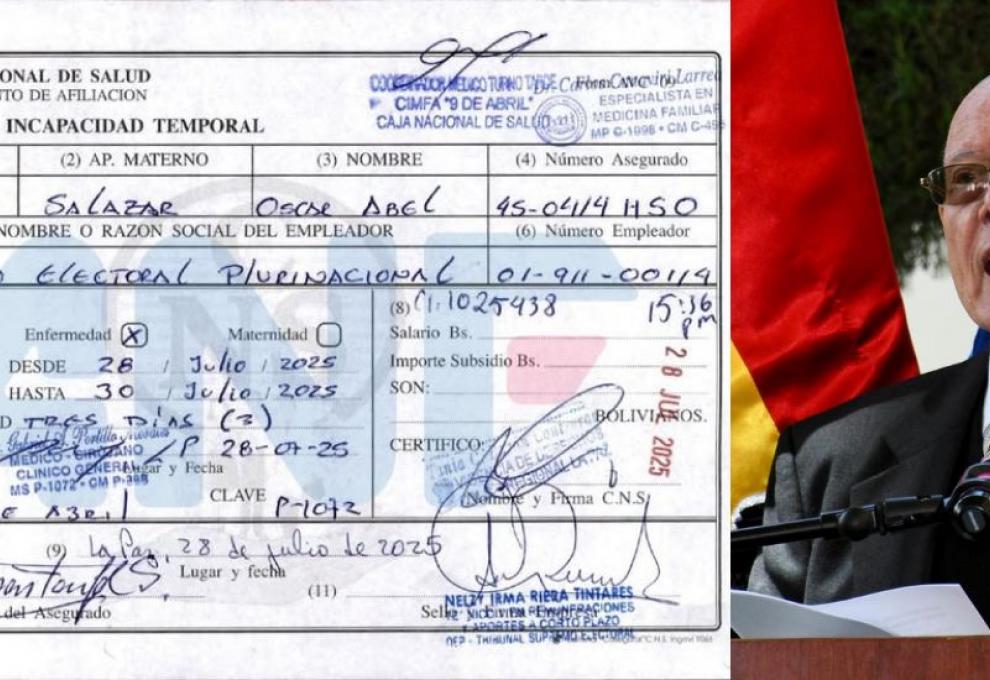 ONAL DE SALUD
NTO DE AFILIACION
INCAPACIDAD TEMPORAL
COORDINADOR MEDICO TURNO TARDE
CIMFA "9 DE ABRIL"
CAJA NACIONAL DE SALUD
Form. AVC - 09
ESPECIALISTA EN
MEDICINA FAMILIAR
MP C-1998 • CM C-
(2) AP. MATERNO
(3) NOMBRE
(4) Número Asegurado
SALAZAR
OSCAR ABEL
45-0414 HSO
NOMBRE O RAZON SOCIAL DEL EMPLEADOR
(6) Número Empleador
O ELECTORAL PLURINACIONAL
01-911-00114
(8) CI: 1025438
15:36 pm
Enfermedad X
Maternidad
Salario Bs.
DESDE 28 / Julio / 2025
Importe Subsidio Bs.
HASTA 30 / Julio / 2025
SON:
28 JUL 2025
D TRES DÍAS (3)
BOLIVIANOS.
P 28-07-25
CERTIFICO:
MEDICO - CIRUJANO
CLINICO GENERAL
MS P-1072 • CM P-398
Lugar y Fecha
REGIONAL LA PAZ
CLAVE
(Nombre y Firma C.N.S.
E ABRIL
P-1072
(9) La Paz, 28 de julio de 2025
Lugar y fecha
(11)
del Asegurado
NELZY IRMA RIERA TINTARES
REMUNERACIONES
Y APORTES A CORTO PLAZO
DEP - TRIBUNAL SUPREMO ELECTORAL